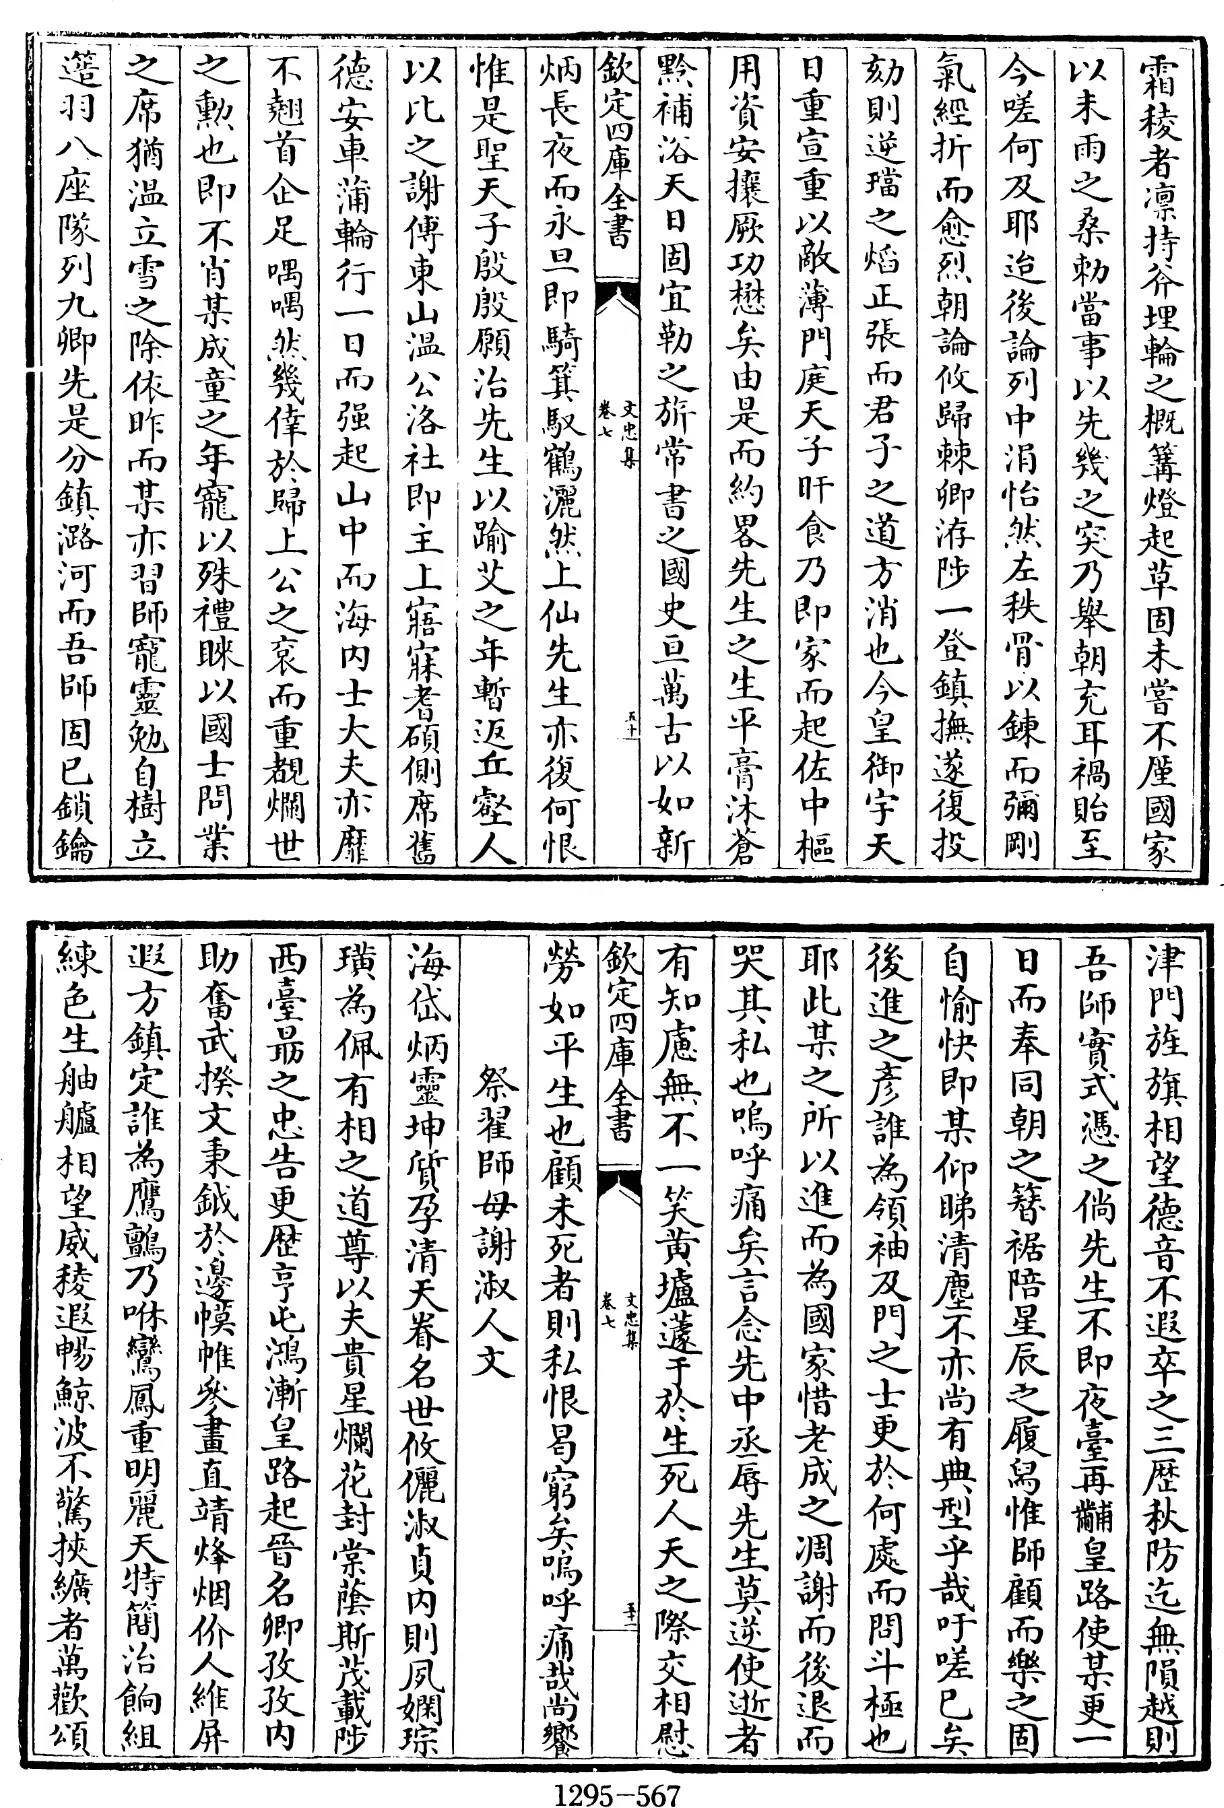 霜稜者凛持斧埋輪之概篝燈起草固未嘗不厪國家
以未雨之桑勅當事以先幾之突乃舉朝充耳禍貽至
今嗟何及耶迨後論列中涓怡然左秩骨以鍊而彌剛
氣經折而愈烈朝論攸歸棘卿洊陟一登鎮撫遂復投
劾則逆璫之熖正張而君子之道方消也今皇御宇天
日重宣重以敵薄門庭天子旰食乃即家而起佐中樞
用資安攘厥功懋矣由是而約畧先生之生平膏沐蒼
黔補浴天日固宜勒之旂常書之國史亘萬古以如新
欽定四庫全書
文忠集
卷七
五十
炳長夜而永旦即騎箕馭鶴灑然上仙先生亦復何恨
惟是聖天子殷殷願治先生以踰艾之年暫返丘壑人
以比之謝傅東山温公洛社即主上寤寐耆碩側席舊
德安車蒲輪行一日而强起山中而海内士大夫亦靡
不翹首企足喁喁然幾倖於歸上公之衮而重覩爛世
之勲也即不肖某成童之年寵以殊禮睐以國士問業
之席猶温立雪之除依昨而某亦習師寵靈勉自樹立
簉羽八座隊列九卿先是分鎮潞河而吾師固已鎖鑰
津門旌旗相望德音不遐卒之三歴秋防迄無隕越則
吾師實式憑之倘先生不即夜臺再黼皇路使某更一
日而奉同朝之簪裾陪星辰之履舄惟師顧而樂之固
自愉快即某仰睇清塵不亦尚有典型乎哉吁嗟已矣
後進之彦誰為領袖及門之士更於何處而問斗極也
耶此某之所以進而為國家惜老成之凋謝而後退而
哭其私也嗚呼痛矣言念先中丞辱先生莫逆使逝者
有知慮無不一笑黄壚蘧于於生死人天之際交相慰
欽定四庫全書
文忠集
卷七
五十一
勞如平生也顧未死者則私恨曷窮矣嗚呼痛哉尚饗
祭翟師母謝淑人文
海岱炳靈坤質孕清天眷名世攸儷淑貞内則夙嫻琮
璜為佩有相之道尊以夫貴星爛花封棠蔭斯茂載陟
西臺朂之忠告更歴亨屯鴻漸皇路起晉名卿孜孜内
助奮武揆文秉鉞於邊幙帷參畫直靖烽烟价人維屏
遐方鎮定誰為鷹鸇乃咻鸞鳳重明麗天特簡治餉組
練色生舳艫相望威稜遐暢鯨波不驚挾纊者萬歡頌
1295-567